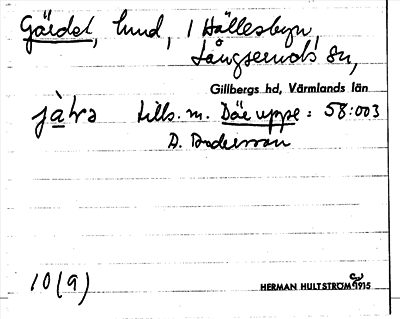 Gärdet, hmd, i Hällesbyn,
Långseruds sn,
Gillbergs hd, Värmlands län
jàtrə tills. m. Däe uppe: 58:003
D. Andersson
10(9)
HERMAN HULTSTRÖM 1915